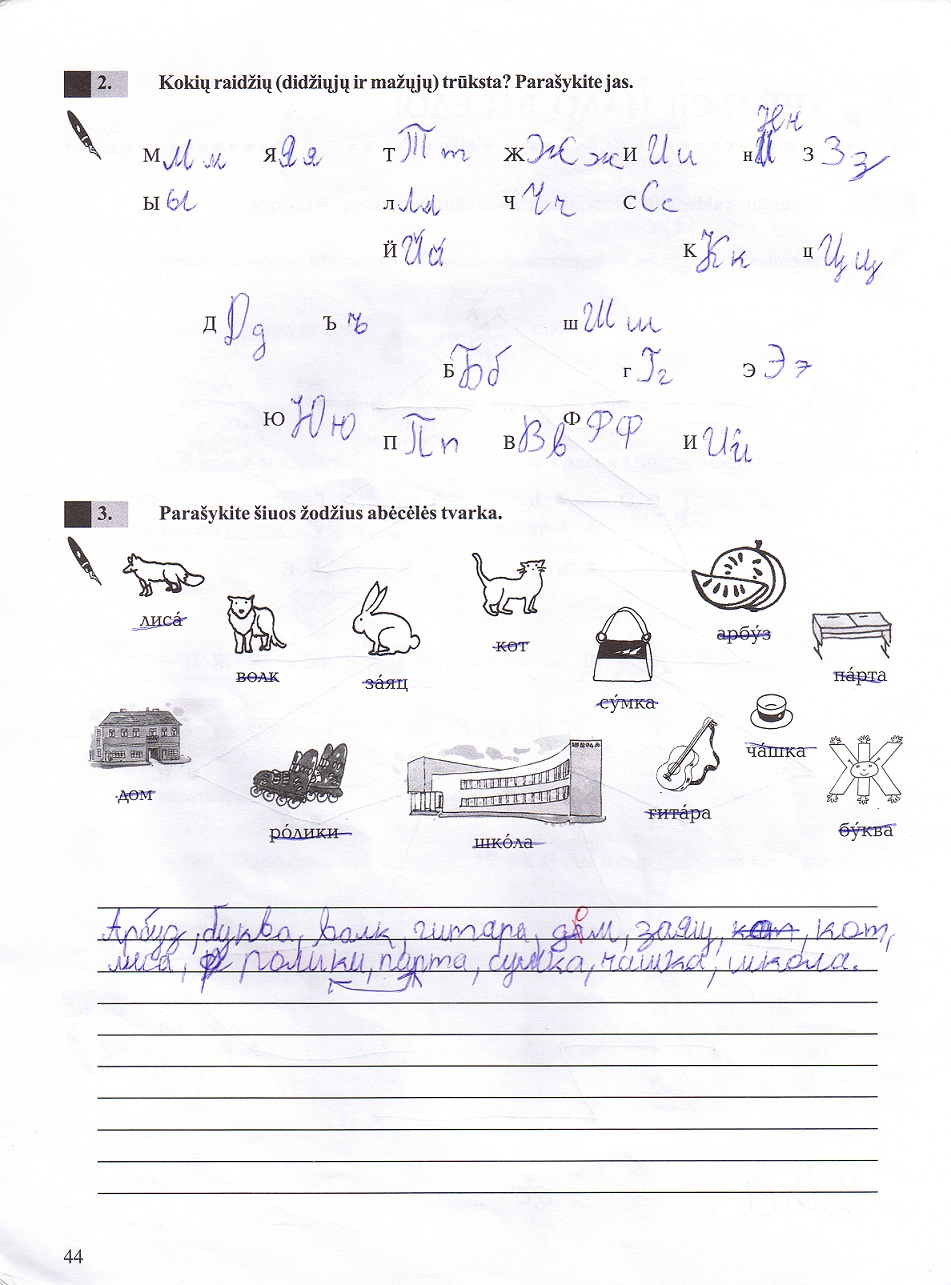 2. Kokių raidžių (didžiųjų ir mažųjų) trūksta? Parašykite jas.
Нн
М Мм Я Яя Т Тт Ж Жж И Ии н З Зз
Ы ы л Лл Ч Чч С Сс
Й Йй К Кк ц Цц
Д Дд Ъ ъ ш Шш
Б Бб г Гг Э Ээ
Ю Юю П Пп В Вв Ф Фф И Ии
3. Parašykite šiuos žodžius abėcėlės tvarka.
лиса́ волк за́яц кот су́мка арбу́з па́рта
дом ро́лики шко́ла гита́ра ча́шка бу́ква
Арбуз, буква, валк, гитара, дом, заяц, кот,
лиса, ролики, парта, сумка, чашка, школа.
44